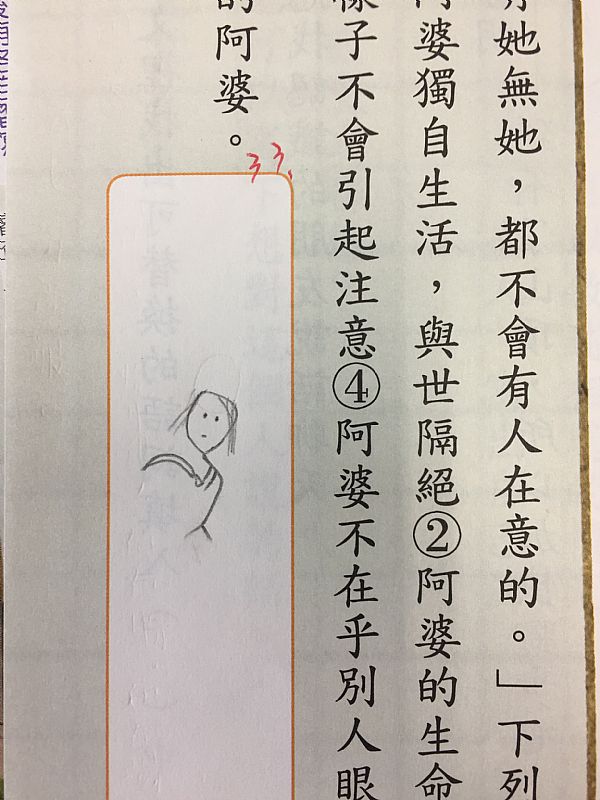 她無她，都不會有人在意的。」下列
阿婆獨自生活，與世隔絕②阿婆的生命
樣子不會引起注意④阿婆不在乎別人眼
的阿婆。
33.